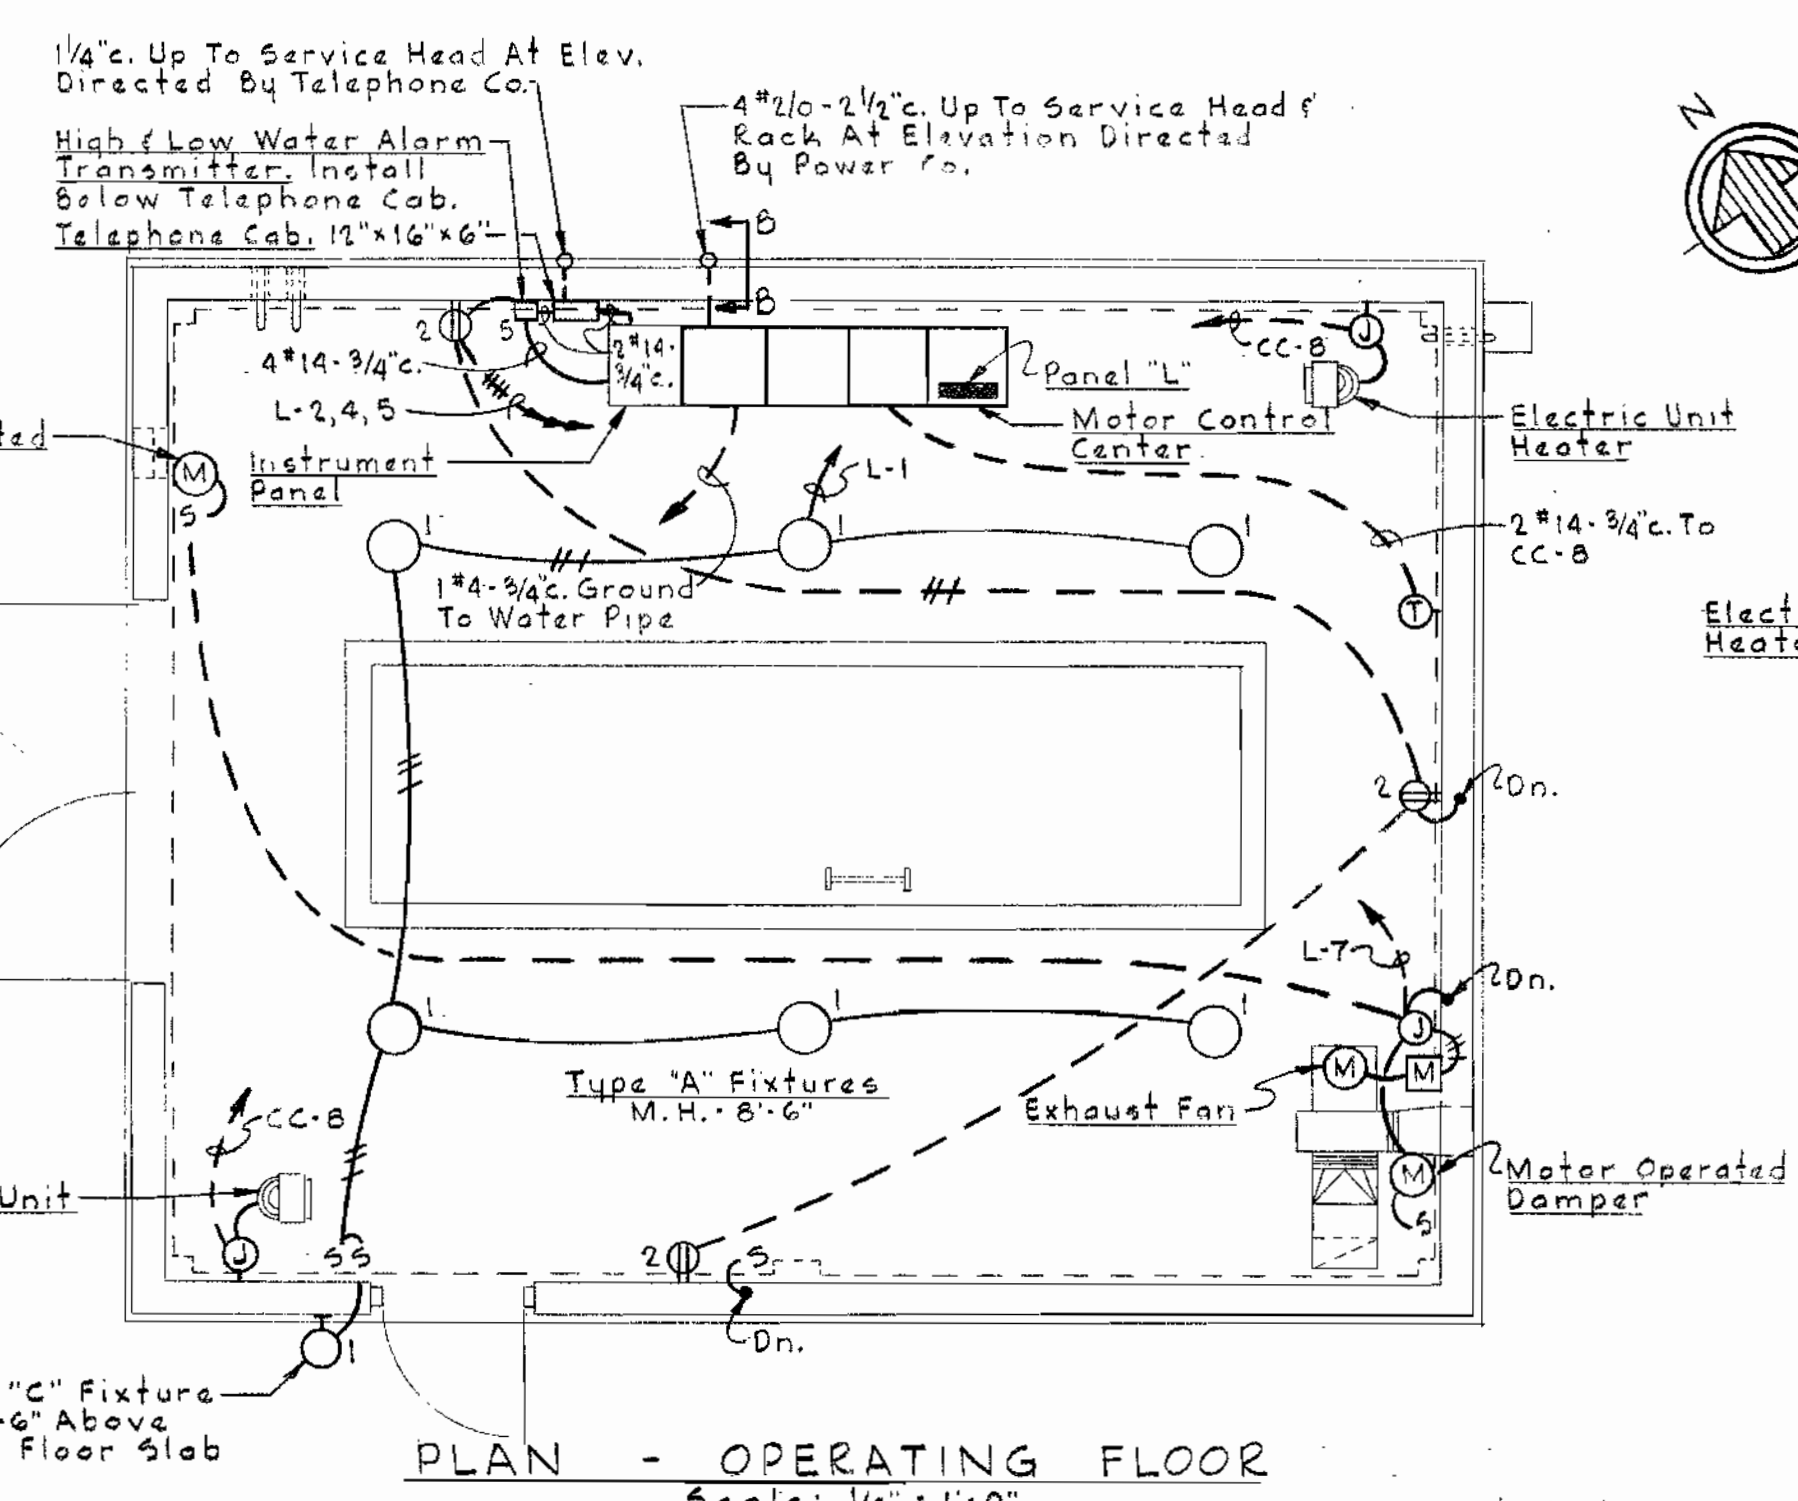 1¼"c. Up To Service Head At Elev.
Directed By Telephone Co.
High & Low Water Alarm
Transmitter. Install
Below Telephone Cab.
Telephone Cab. 12"x16"x6"
4 #2/0 - 2½"c. Up To Service Head &
Rack At Elevation Directed
By Power Co.
N
B
B
2
5
4 #14 - ¾"c.
2 #14 -
¾"c.
L-2, 4, 5
CC-8
J
Panel "L"
Motor Control
Center
Electric Unit
Heater
Instrument
Panel
M
S
L-1
1
1
1
2 #14 - ¾"c. To
CC-8
1 #4 - ¾"c. Ground
To Water Pipe
T
2
Dn.
L-7
Dn.
1
1
1
J
M
M
Type "A" Fixtures
M.H. - 8'-6"
Exhaust Fan
CC-8
Unit
M
S
Motor Operated
Damper
J
S S
2
S
Dn.
1
"C" Fixture
6" Above
Floor Slab
PLAN - OPERATING FLOOR